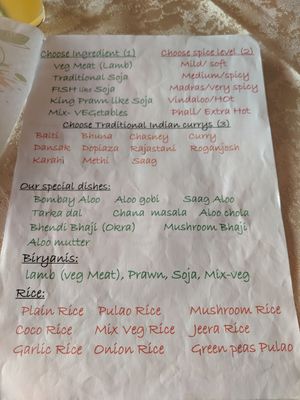 Choose Ingredient (1) Choose spice level (2)
Veg Meat (Lamb) Mild/ soft
Traditional Soja Medium/spicy
FISH like Soja Madras/very spicy
King Prawn like Soja Vindaloo/Hot
Mix- VEGetables Phall/ Extra Hot
Choose Traditional Indian currys (3)
Balti Bhuna Chasney Curry
Dansak Dopiaza Rajastani Roganjosh
Karahi Methi Saag
Our special dishes:
Bombay Aloo Aloo gobi Saag Aloo
Tarka dal Chana masala Aloo chola
Bhendi Bhaji (Okra) Mushroom Bhaji
Aloo mutter
Biryanis:
lamb (veg Meat), Prawn, Soja, Mix-veg
Rice:
Plain Rice Pulao Rice Mushroom Rice
Coco Rice Mix Veg Rice Jeera Rice
Garlic Rice Onion Rice Green peas Pulao